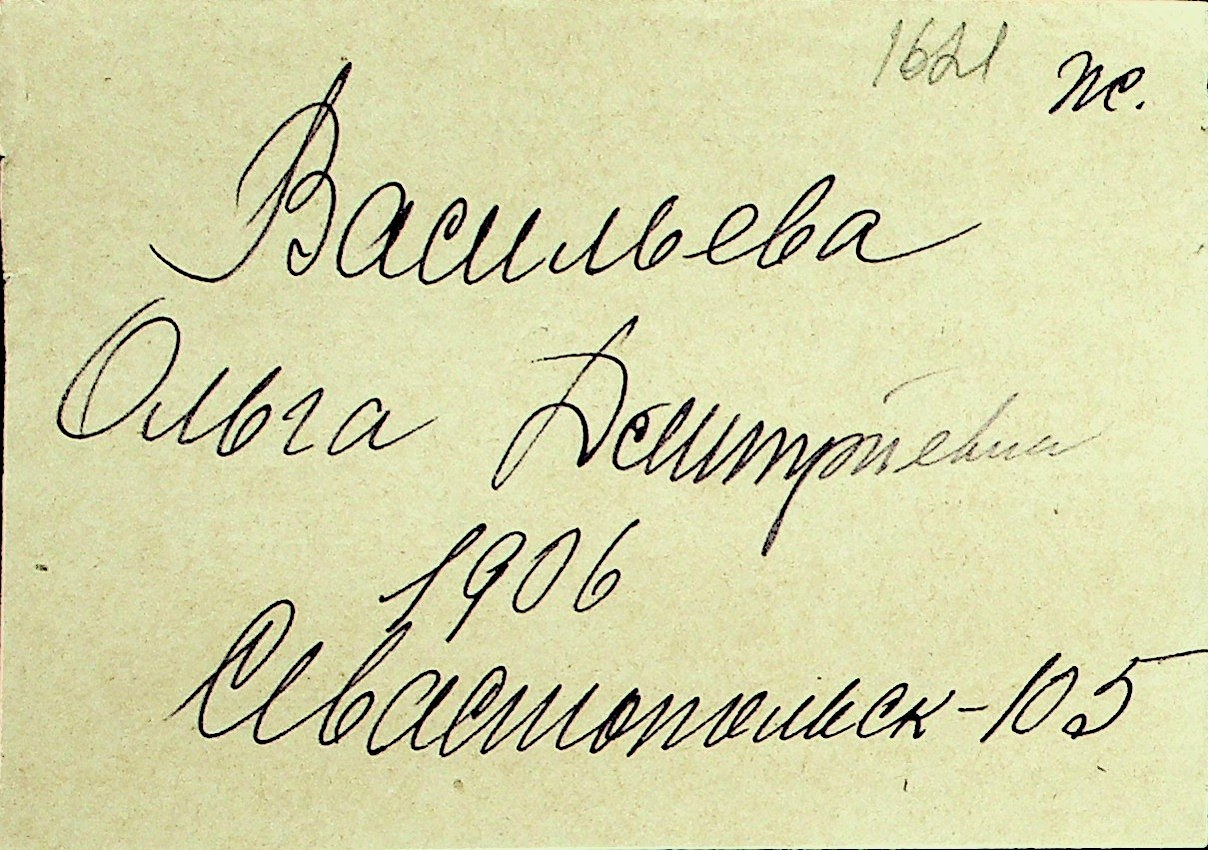 1621 ж.
Васильева
Ольга Дмитриевна
1906
Севастопольск-105